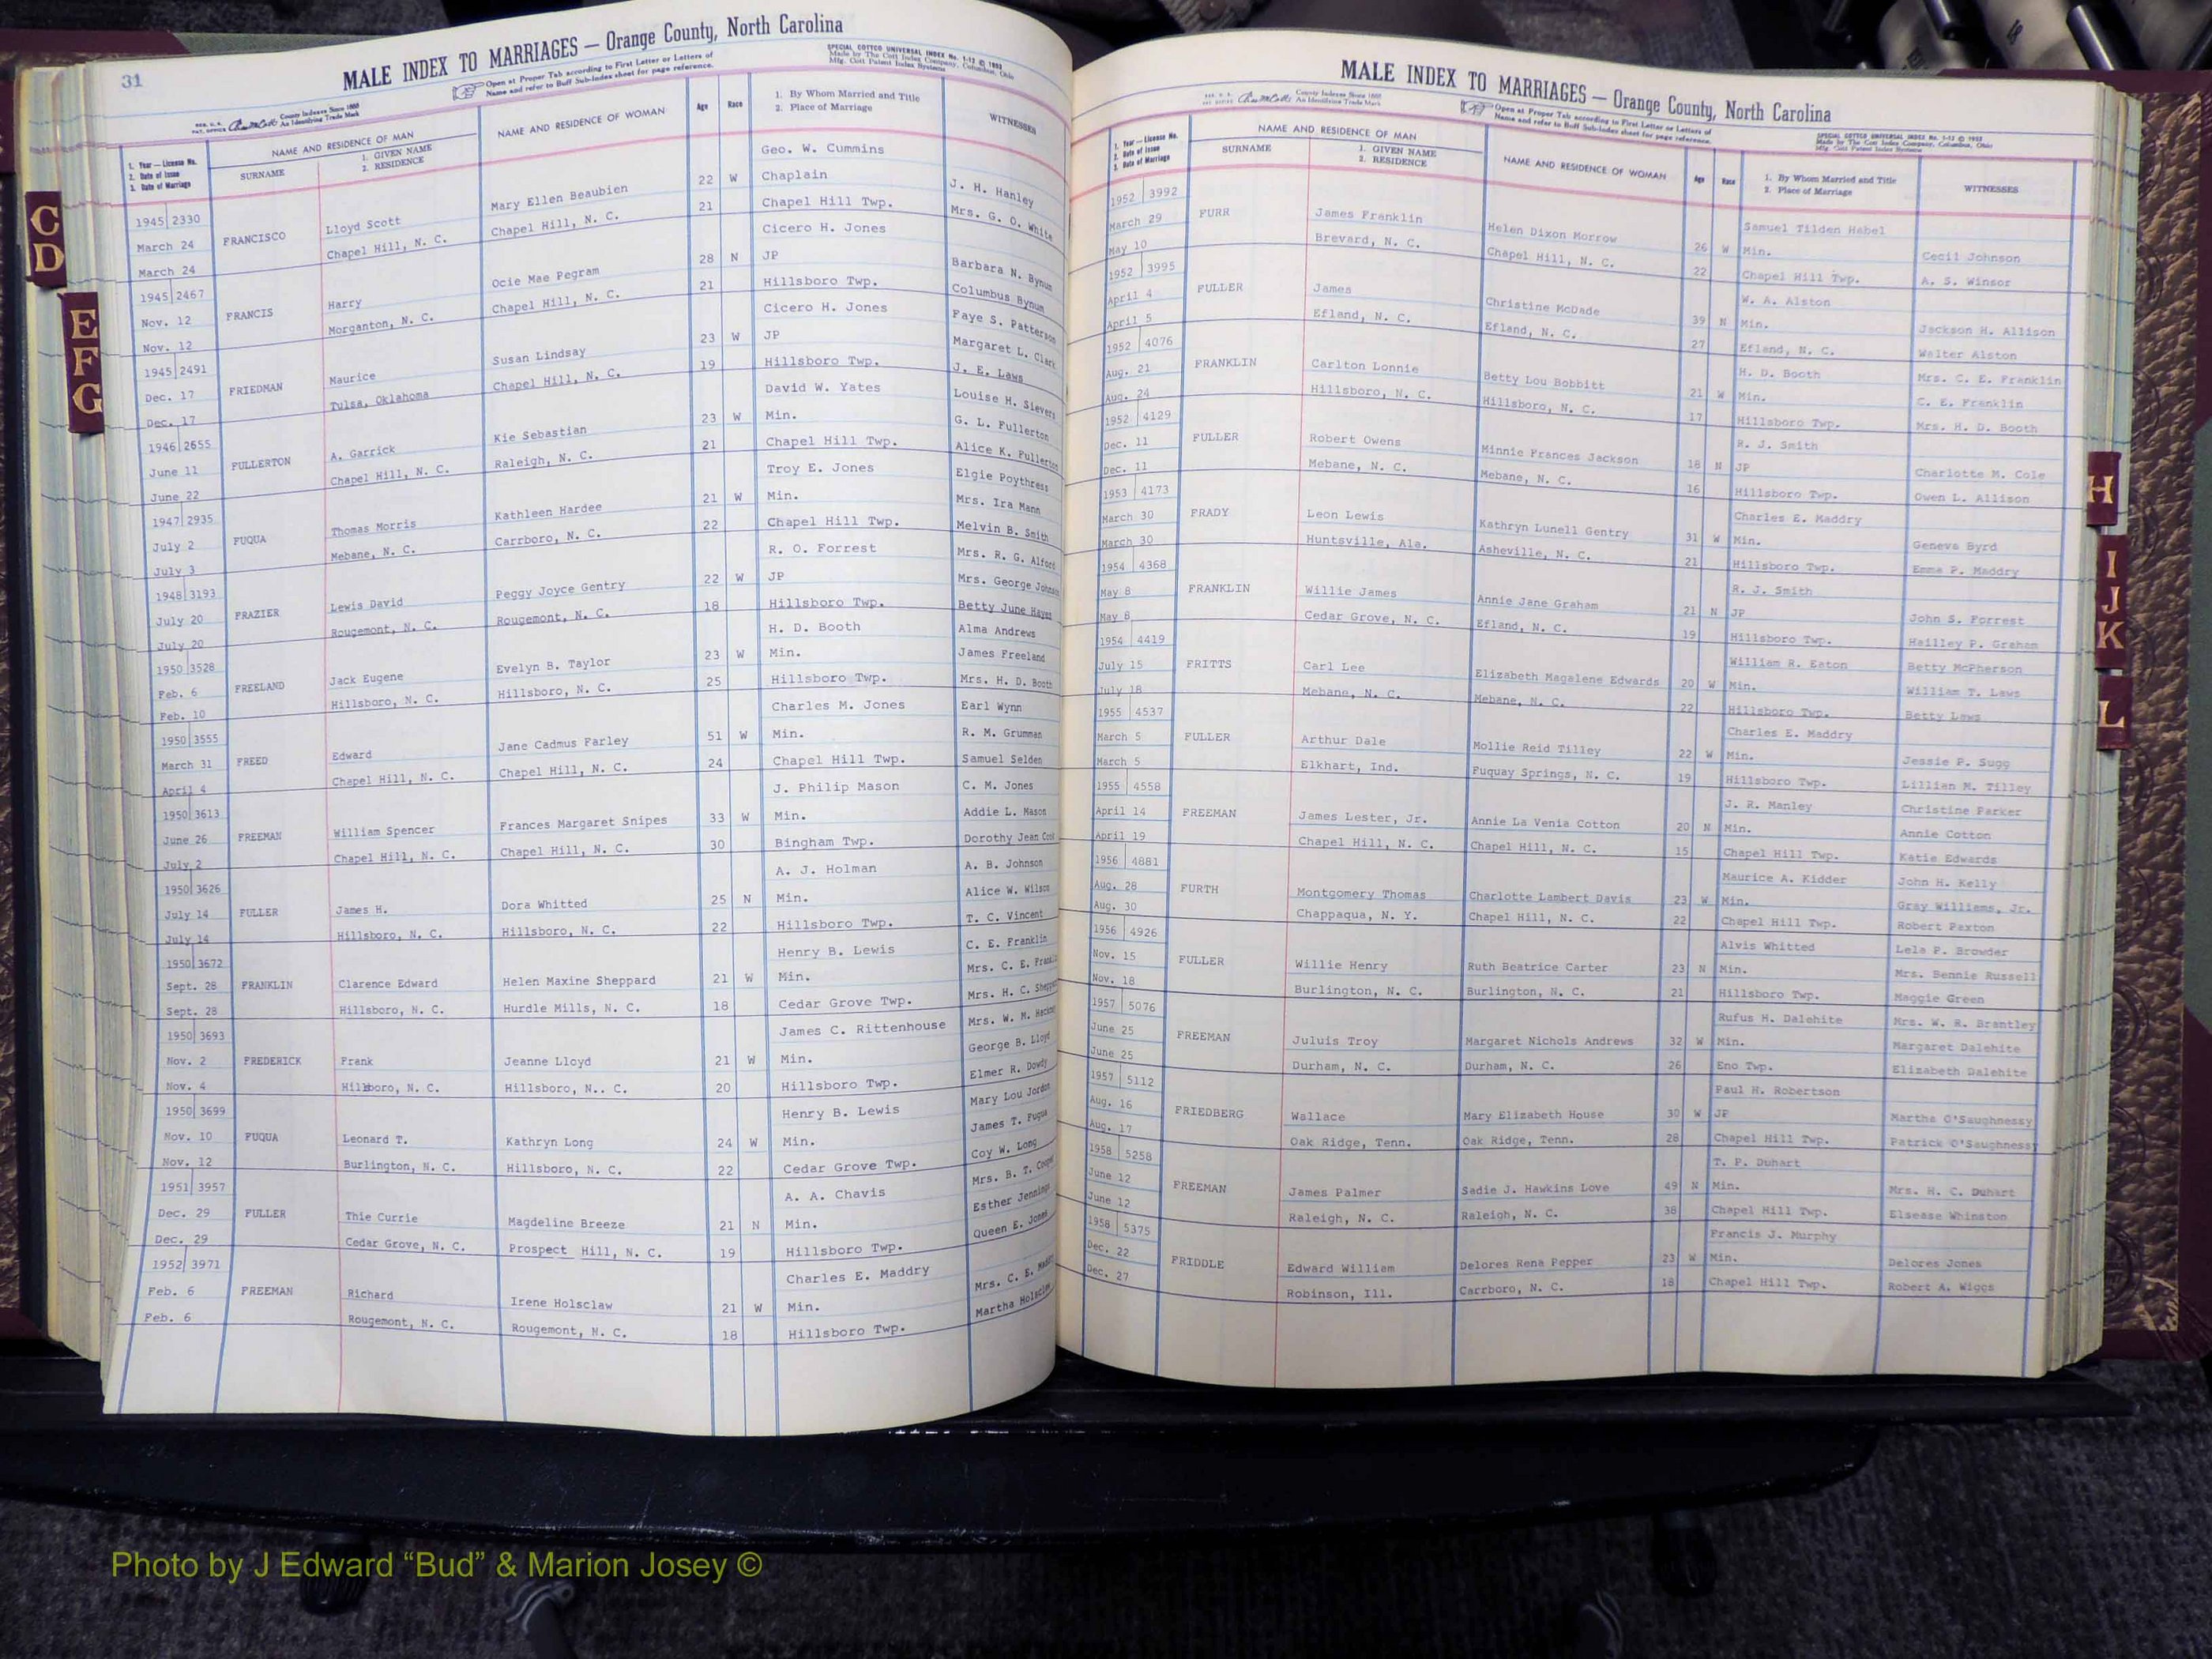 31
MALE INDEX TO MARRIAGES — Orange County, North Carolina
SPECIAL COTTCO UNIVERSAL INDEX No. 1-12 ©
Made by The Cott Index Company, Columbus, Ohio
Mfg. Cott Patent Index Systems
Open at Proper Tab according to First Letter or Letters of
Name and refer to Buff Sub-Index sheet for page reference.
County Indexes Since 1888
An Identifying Trade Mark
1. Year — License No.
2. Date of Issue
3. Date of Marriage
NAME AND RESIDENCE OF MAN
SURNAME
1. GIVEN NAME
2. RESIDENCE
NAME AND RESIDENCE OF WOMAN
Age
Race
1. By Whom Married and Title
2. Place of Marriage
WITNESSES
1945 2330 Geo. W. Cummins
March 24 FRANCISCO Lloyd Scott Mary Ellen Beaubien 22 W Chaplain J. H. Hanley
March 24 Chapel Hill, N. C. Chapel Hill, N. C. 21 Chapel Hill Twp. Mrs. G. O. White
1945 2467 Cicero H. Jones
Nov. 12 FRANCIS Harry Ocie Mae Pegram 28 N JP Barbara N. Bynum
Nov. 12 Morganton, N. C. Chapel Hill, N. C. 21 Hillsboro Twp. Columbus Bynum
1945 2491 Cicero H. Jones Faye S. Patterson
Dec. 17 FRIEDMAN Maurice Susan Lindsay 23 W JP Margaret L. Clark
Dec. 17 Tulsa, Oklahoma Chapel Hill, N. C. 19 Hillsboro Twp. J. E. Laws
1946 2655 David W. Yates Louise H. Sievers
June 11 FULLERTON A. Garrick Kie Sebastian 23 W Min. G. L. Fullerton
June 22 Chapel Hill, N. C. Raleigh, N. C. 21 Chapel Hill Twp. Alice K. Fullerton
1947 2935 Troy E. Jones Elgie Poythress
July 2 FUQUA Thomas Morris Kathleen Hardee 21 W Min. Mrs. Ira Mann
July 3 Mebane, N. C. Carrboro, N. C. 22 Chapel Hill Twp. Melvin B. Smith
1948 3193 R. O. Forrest Mrs. R. G. Alford
July 20 FRAZIER Lewis David Peggy Joyce Gentry 22 W JP Mrs. George
July 20 Rougemont, N. C. Rougemont, N. C. 18 Hillsboro Twp. Betty June Hayes
1950 3528 H. D. Booth Alma Andrews
Feb. 6 FREELAND Jack Eugene Evelyn B. Taylor 23 W Min. James Freeland
Feb. 10 Hillsboro, N. C. Hillsboro, N. C. 25 Hillsboro Twp. Mrs. H. D. Booth
1950 3555 Charles M. Jones Earl Wynn
March 31 FREED Edward Jane Cadmus Farley 51 W Min. R. M. Grumman
April 4 Chapel Hill, N. C. Chapel Hill, N. C. 24 Chapel Hill Twp. Samuel Selden
1950 3613 J. Philip Mason C. M. Jones
June 26 FREEMAN William Spencer Frances Margaret Snipes 33 W Min. Addie L. Mason
July 2 Chapel Hill, N. C. Chapel Hill, N. C. 30 Bingham Twp. Dorothy Jean Cook
1950 3626 A. J. Holman A. B. Johnson
July 14 FULLER James H. Dora Whitted 25 N Min. Alice W. Wilson
July 14 Hillsboro, N. C. Hillsboro, N. C. 22 Hillsboro Twp. T. C. Vincent
1950 3672 Henry B. Lewis C. E. Franklin
Sept. 28 FRANKLIN Clarence Edward Helen Maxine Sheppard 21 W Min. Mrs. C. E.
Sept. 28 Hillsboro, N. C. Hurdle Mills, N. C. 18 Cedar Grove Twp. Mrs. H. C.
1950 3693 James C. Rittenhouse Mrs. W. M.
Nov. 2 FREDERICK Frank Jeanne Lloyd 21 W Min. George B. Lloyd
Nov. 4 Hillsboro, N. C. Hillsboro, N.. C. 20 Hillsboro Twp. Elmer R. Dowdy
1950 3699 Henry B. Lewis Mary Lou Jordon
Nov. 10 FUQUA Leonard T. Kathryn Long 24 W Min. James T. Fuqua
Nov. 12 Burlington, N. C. Hillsboro, N. C. 22 Cedar Grove Twp. Coy W. Long
1951 3957 A. A. Chavis Mrs. B. T. Cooper
Dec. 29 FULLER Thie Currie Magdeline Breeze 21 N Min. Esther Jennings
Dec. 29 Cedar Grove, N. C. Prospect Hill, N. C. 19 Hillsboro Twp. Queen E. Jones
1952 3971 Charles E. Maddry
Feb. 6 FREEMAN Richard Irene Holsclaw 21 W Min. Mrs. C. E. Maddry
Feb. 6 Rougemont, N. C. Rougemont, N. C. 18 Hillsboro Twp. Martha Holsclaw
MALE INDEX TO MARRIAGES — Orange County, North Carolina
County Indexes Since 1888
An Identifying Trade Mark
Open at Proper Tab according to First Letter or Letters of
Name and refer to Buff Sub-Index sheet for page reference.
SPECIAL COTTCO UNIVERSAL INDEX No. 1-12 ©
Made by The Cott Index Company, Columbus, Ohio
Mfg. Cott Patent Index Systems
1. Year — License No.
2. Date of Issue
3. Date of Marriage
NAME AND RESIDENCE OF MAN
SURNAME
1. GIVEN NAME
2. RESIDENCE
NAME AND RESIDENCE OF WOMAN
Age
Race
1. By Whom Married and Title
2. Place of Marriage
WITNESSES
1952 3992 Samuel Tilden Habel
March 29 FURR James Franklin Helen Dixon Morrow 26 W Min. Cecil Johnson
May 10 Brevard, N. C. Chapel Hill, N. C. 22 Chapel Hill Twp. A. S. Winsor
1952 3995 W. A. Alston
April 4 FULLER James Christine McDade 39 N Min. Jackson H. Allison
April 5 Efland, N. C. Efland, N. C. 27 Efland, N. C. Walter Alston
1952 4076 H. D. Booth Mrs. C. E. Franklin
Aug. 21 FRANKLIN Carlton Lonnie Betty Lou Bobbitt 21 W Min. C. E. Franklin
Aug. 24 Hillsboro, N. C. Hillsboro, N. C. 17 Hillsboro Twp. Mrs. H. D. Booth
1952 4129 R. J. Smith
Dec. 11 FULLER Robert Owens Minnie Frances Jackson 18 N JP Charlotte M. Cole
Dec. 11 Mebane, N. C. Mebane, N. C. 16 Hillsboro Twp. Owen L. Allison
1953 4173 Charles E. Maddry
March 30 FRADY Leon Lewis Kathryn Lunell Gentry 31 W Min. Geneva Byrd
March 30 Huntsville, Ala. Asheville, N. C. 21 Hillsboro Twp. Emma P. Maddry
1954 4368 R. J. Smith
May 8 FRANKLIN Willie James Annie Jane Graham 21 N JP John S. Forrest
May 8 Cedar Grove, N. C. Efland, N. C. 19 Hillsboro Twp. Hailley P. Graham
1954 4419 William R. Eaton Betty McPherson
July 15 FRITTS Carl Lee Elizabeth Magalene Edwards 20 W Min. William T. Laws
July 18 Mebane, N. C. Mebane, N. C. 22 Hillsboro Twp. Betty Laws
1955 4537 Charles E. Maddry
March 5 FULLER Arthur Dale Mollie Reid Tilley 22 W Min. Jessie P. Sugg
March 5 Elkhart, Ind. Fuquay Springs, N. C. 19 Hillsboro Twp. Lillian M. Tilley
1955 4558 J. R. Manley Christine Parker
April 14 FREEMAN James Lester, Jr. Annie La Venia Cotton 20 N Min. Annie Cotton
April 19 Chapel Hill, N. C. Chapel Hill, N. C. 15 Chapel Hill Twp. Katie Edwards
1956 4881 Maurice A. Kidder John H. Kelly
Aug. 28 FURTH Montgomery Thomas Charlotte Lambert Davis 23 W Min. Gray Williams, Jr.
Aug. 30 Chappaqua, N. Y. Chapel Hill, N. C. 22 Chapel Hill Twp. Robert Paxton
1956 4926 Alvis Whitted Lela P. Browder
Nov. 15 FULLER Willie Henry Ruth Beatrice Carter 23 N Min. Mrs. Bennie Russell
Nov. 18 Burlington, N. C. Burlington, N. C. 21 Hillsboro Twp. Maggie Green
1957 5076 Rufus H. Dalehite Mrs. W. R. Brantley
June 25 FREEMAN Juluis Troy Margaret Nichols Andrews 32 W Min. Margaret Dalehite
June 25 Durham, N. C. Durham, N. C. 26 Eno Twp. Elizabeth Dalehite
1957 5112 Paul H. Robertson
Aug. 16 FRIEDBERG Wallace Mary Elizabeth House 30 W JP Martha O'Saughnessy
Aug. 17 Oak Ridge, Tenn. Oak Ridge, Tenn. 28 Chapel Hill Twp. Patrick O'Saughnessy
1958 5258 T. P. Duhart
June 12 FREEMAN James Palmer Sadie J. Hawkins Love 49 N Min. Mrs. H. C. Duhart
June 12 Raleigh, N. C. Raleigh, N. C. 38 Chapel Hill Twp. Elsease Whinston
1958 5375 Francis J. Murphy
Dec. 22 FRIDDLE Edward William Delores Rena Pepper 23 W Min. Delores Jones
Dec. 27 Robinson, Ill. Carrboro, N. C. 18 Chapel Hill Twp. Robert A. Wiggs
C
D
E
F
G
H
I
J
K
L
Photo by J Edward “Bud” & Marion Josey ©